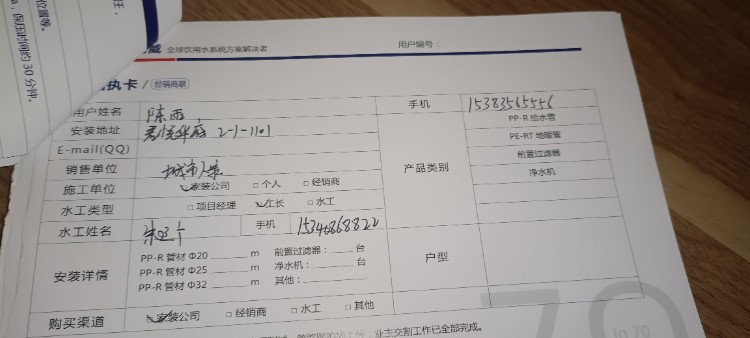 位置等。
，保压时间约30分钟。
威 全球饮用水系统方案解决者 用户编号：
执卡 / 经销商联
用户姓名 陈雨 手机 15383565556
安装地址 2-1-1101 产品类别 PP-R 给水管
E-mail(QQ) PE-RT 地暖管
销售单位 城市人家 前置过滤器
施工单位 ☑家装公司 □个人 □经销商 净水机
水工类型 □项目经理 ☑工长 □水工
水工姓名 手机 15340868822
安装详情 PP-R 管材 Φ20 ______ m 前置过滤器：____ 台 户型
PP-R 管材 Φ25 ______ m 净水机：____ 台
PP-R 管材 Φ32 ______ m 其他：____
购买渠道 ☑家装公司 □经销商 □水工 □其他
业主交割工作已全部完成。
in 70